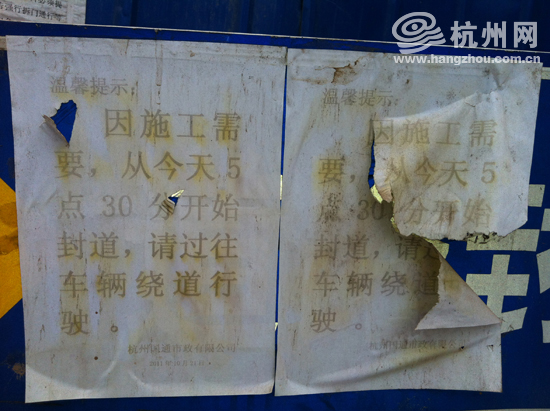 杭州网
www.hangzhou.com.cn
温馨提示:
因施工需
要，从今天5
点30分开始
封道，请过往
车辆绕道行
驶。
温馨提示:
因施工需
要，从今天5
点30分开始
封道，请过
车辆绕道
驶。